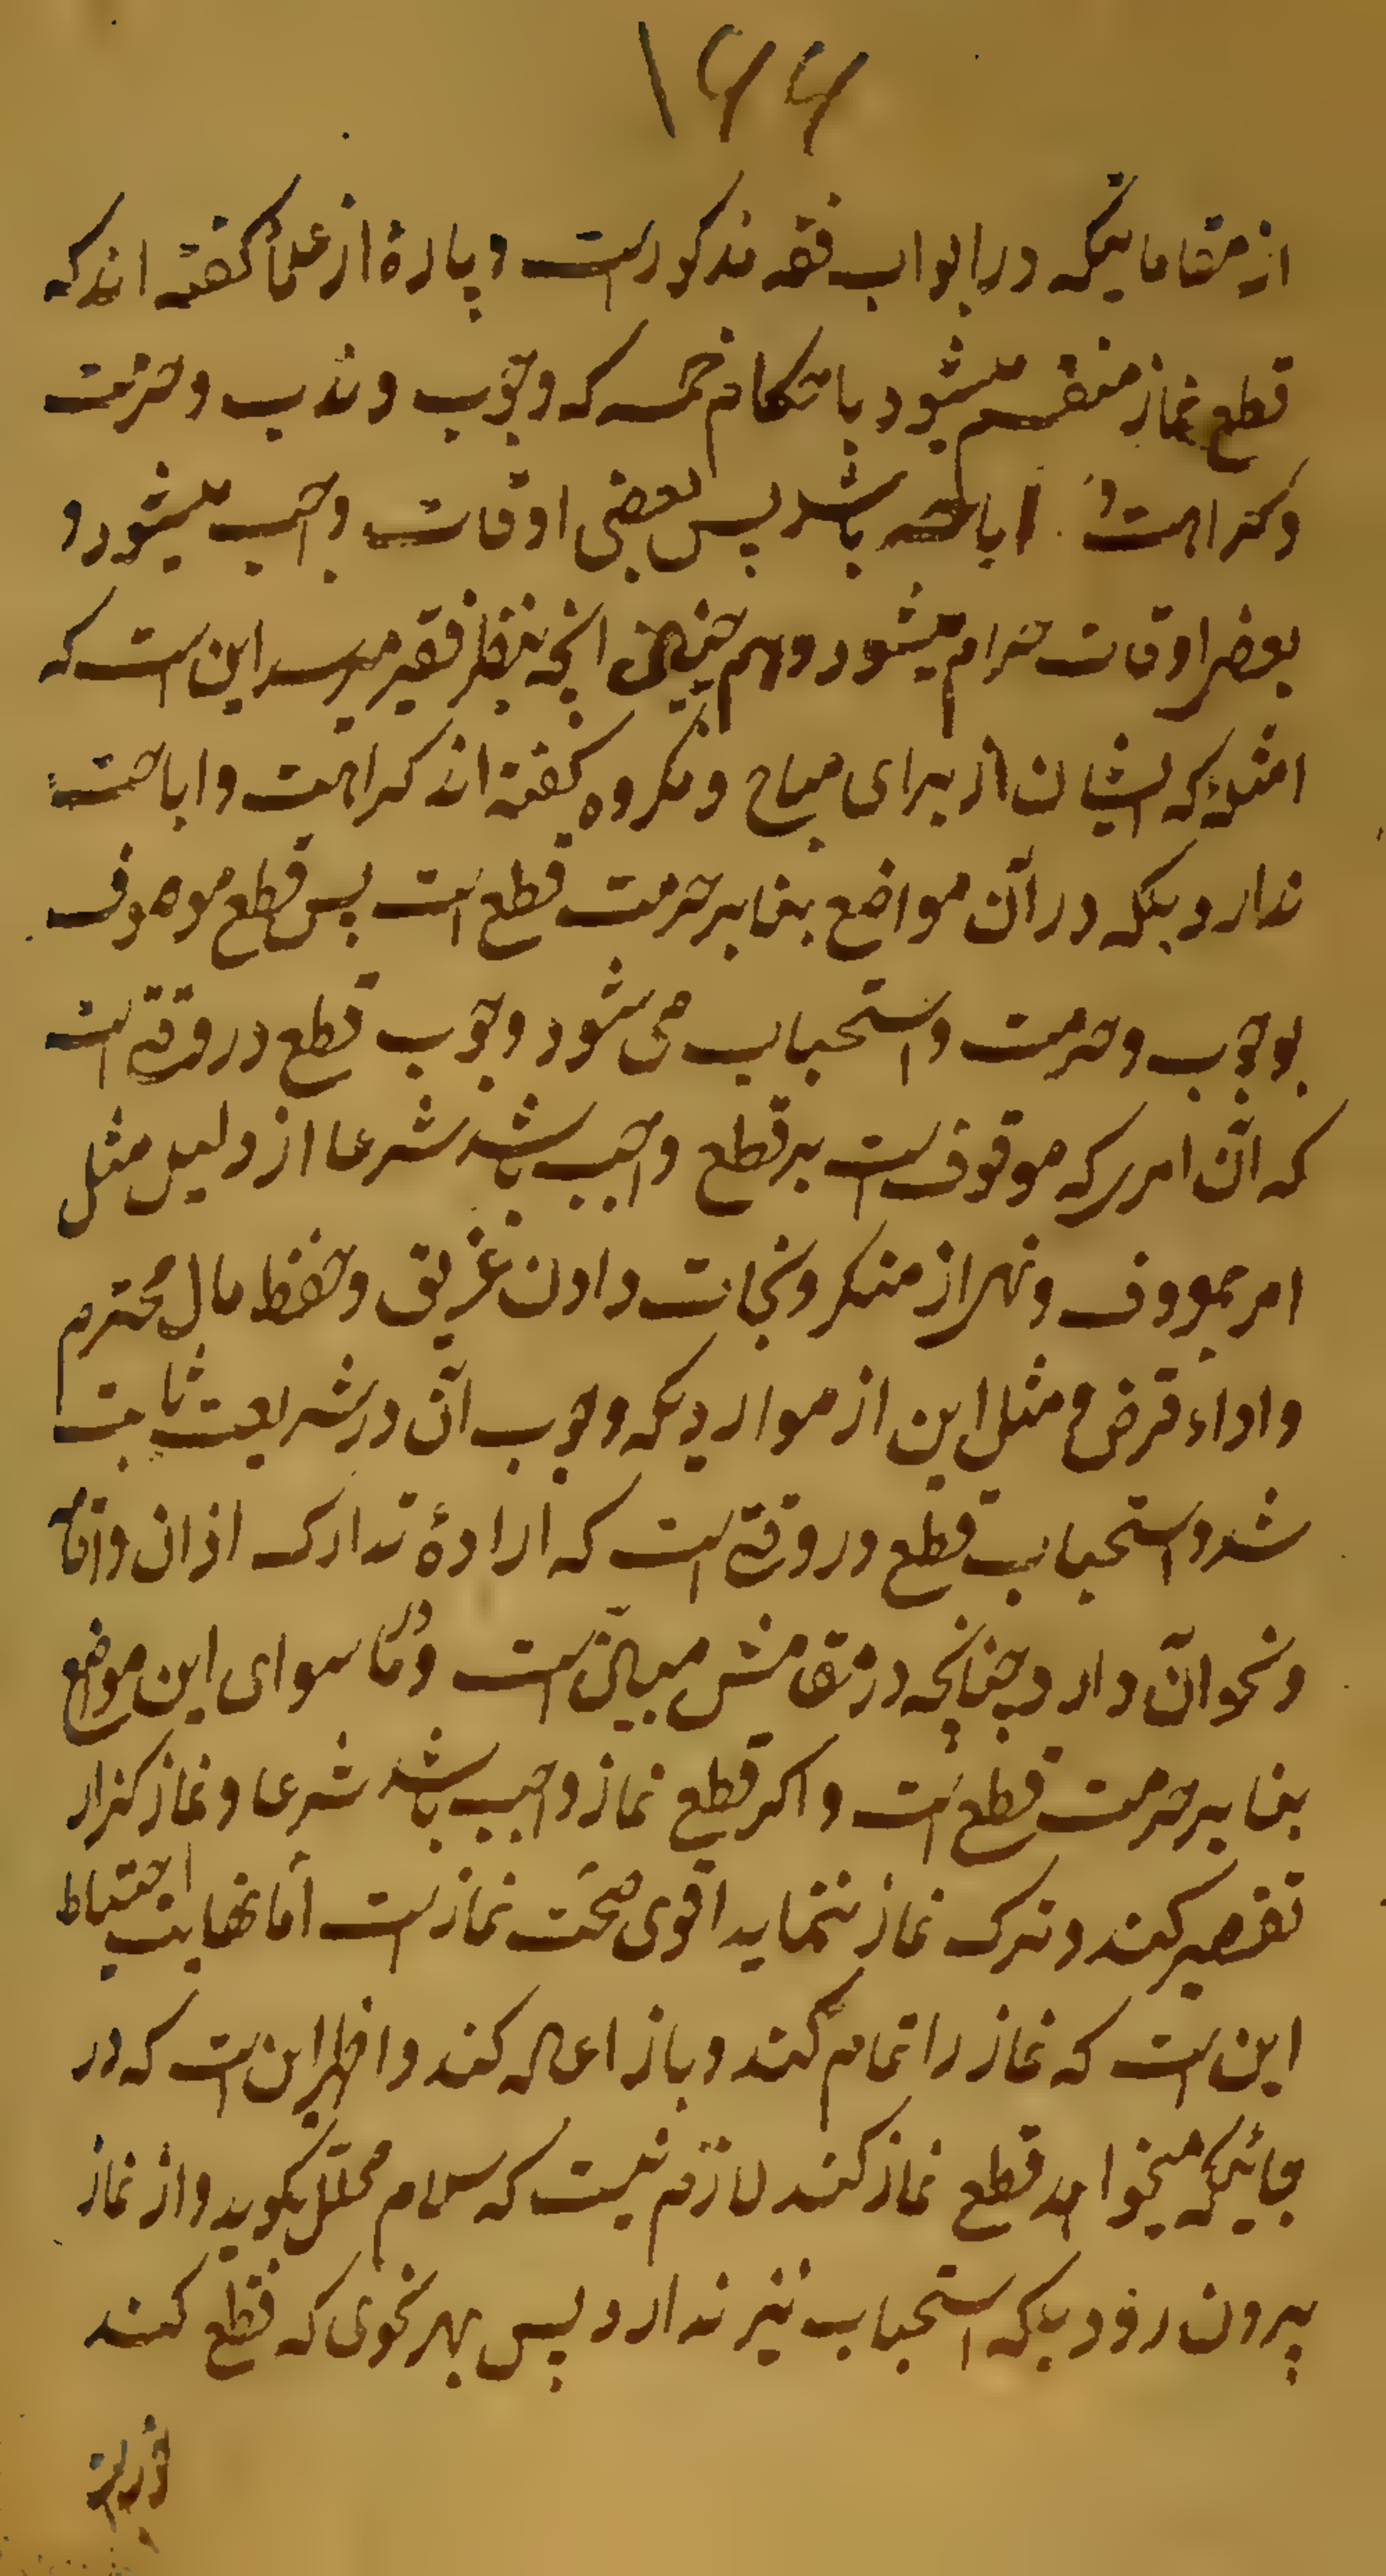 ۱۶۶
از مقاماتیکه در ابواب فقه مذکور است و پارهٔ از علما کفته اند که
قطع نماز منقسم میشود باحکام خمسه که وجوب و ندب و حرمت
و کراهت و اباحه باشد پس بعضی اوقات واجب میشود و
بعضی اوقات حرام میشود و هم چنین انچه بنظر فقیر میرسد این است که
امثلهٔ که ایشان از برای مباح و مکروه کفته اند کراهت و اباحت
ندارد بلکه در آن مواضع بنا بر حرمت قطع است پس قطع موصوف
بوجوب و حرمت و استحباب می شود وجوب قطع در وقتی است
که آن امری که موقوف است بر قطع واجب باشد شرعا از دلیل مثل
امر بمعروف و نهی از منکر و نجات دادن غریق و حفظ مال محترم
و اداء قرض و مثل این از مواردیکه وجوب آن در شریعت ثابت
شد و استحباب قطع در وقتی است که ارادهٔ تدارک اذان و اقامه
و نحو آن دارد چنانچه در مقامش مبیّن است و در ما سوای این موضع
بنا بر حرمت قطع است و اکر قطع نماز واجب باشد شرعا و نماز کزار
تقصیر کند و ترک نماز ننماید اقوی صحّت نماز است امّا نهایت احتیاط
این است که نماز را تمام کند و باز اعاده کند و اظهر این است که در
جائیکه میخواهد قطع نماز کند لازم نیست که سلام محلّل بکوید و از نماز
بیرون رود بلکه استحباب نیز ندارد پس بهر نحوی که قطع کند